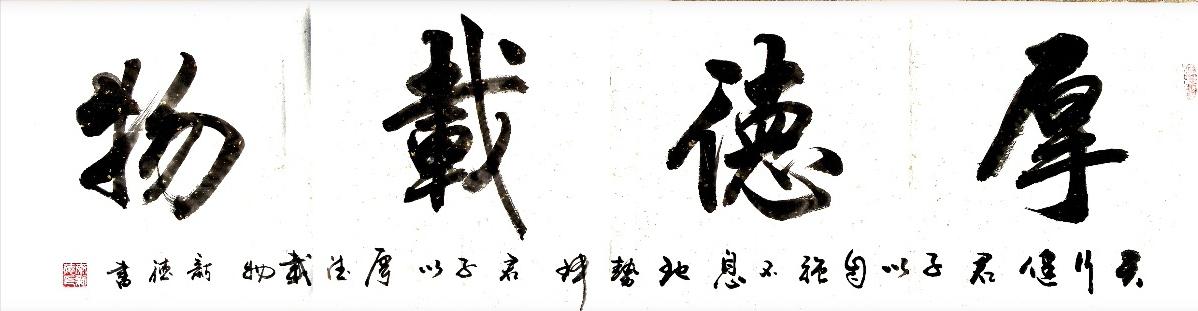 厚德載物
天行健君子以自强不息地勢坤君子以厚德載物 書